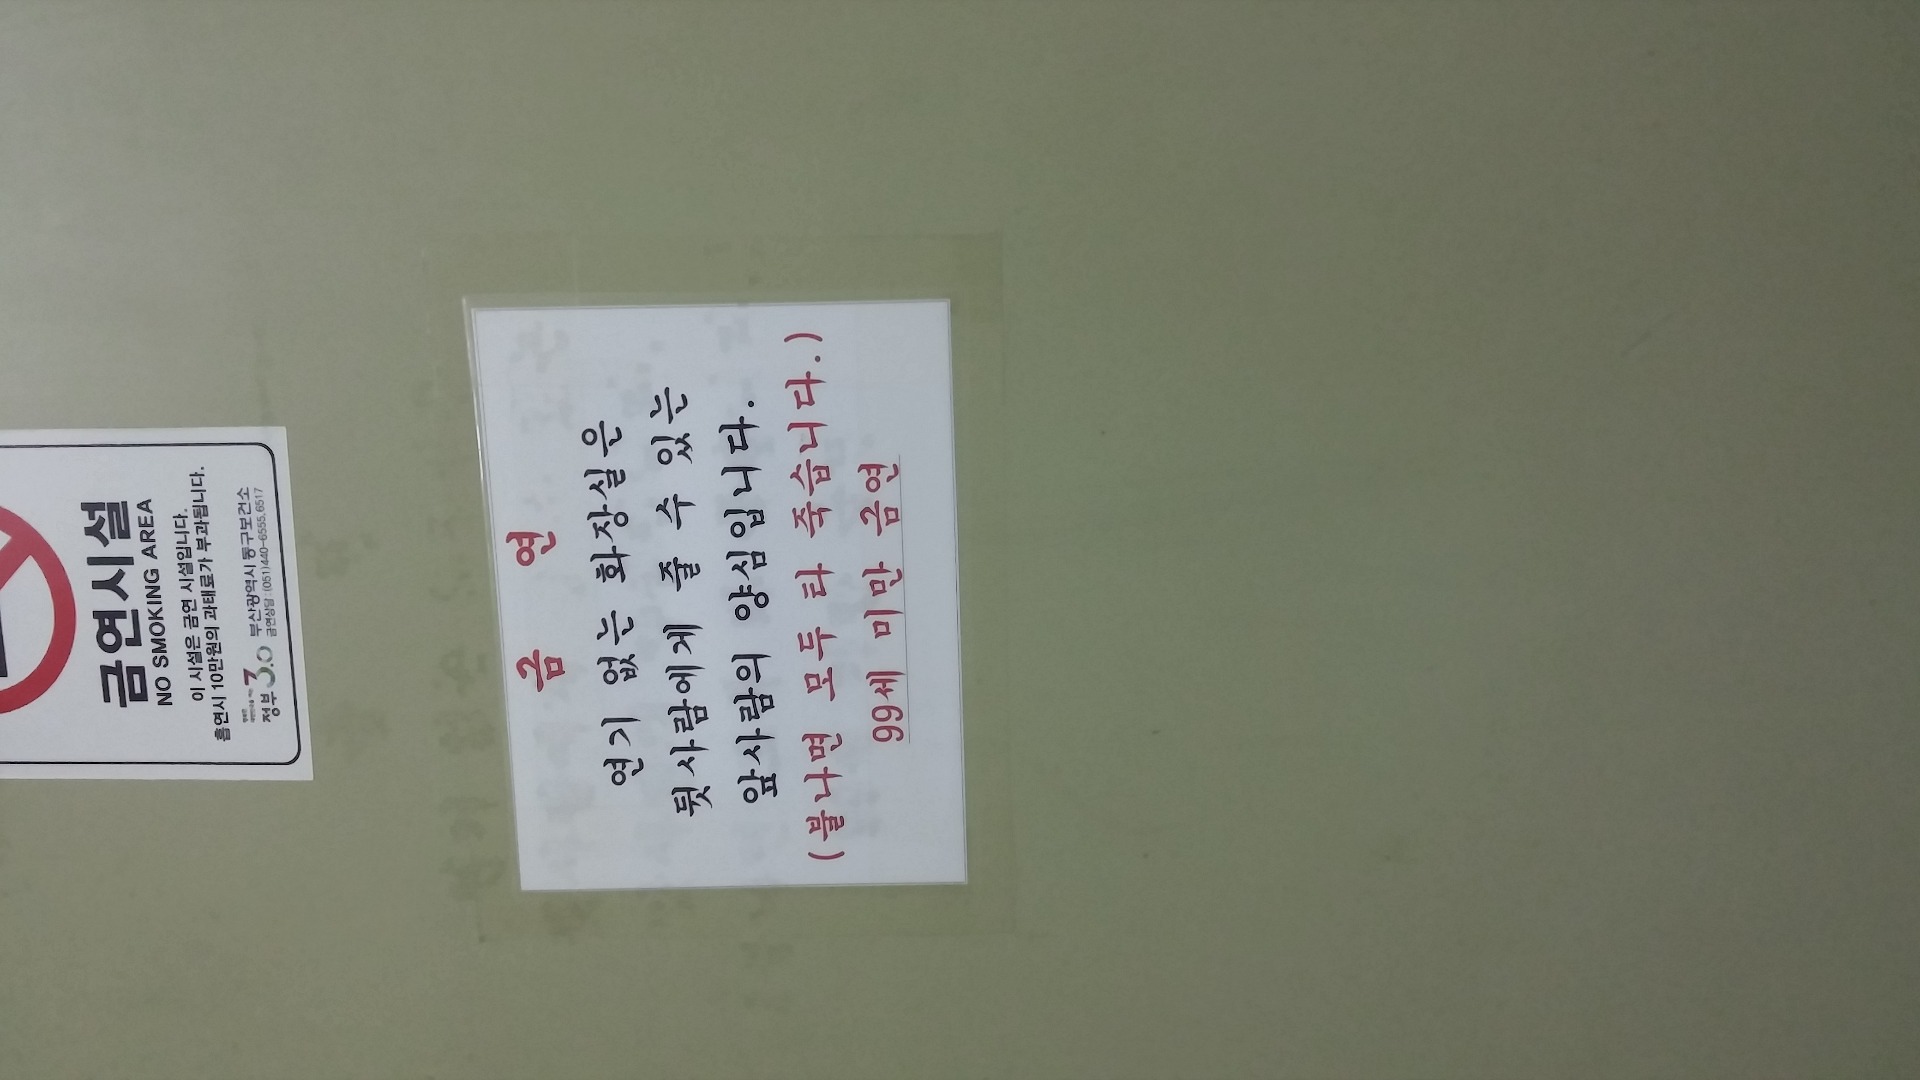 금연시설
NO SMOKING AREA
이 시설은 금연 시설입니다.
흡연시 10만원의 과태료가 부과됩니다.
정부 3.0 부산광역시 동구보건소
금연상담 : (051)440-6555,6517
금 연
연기 없는 화장실은
뒷사람에게 줄 수 있는
앞사람의 양심입니다.
(불나면 모두 타 죽습니다.)
99세 미만 금연